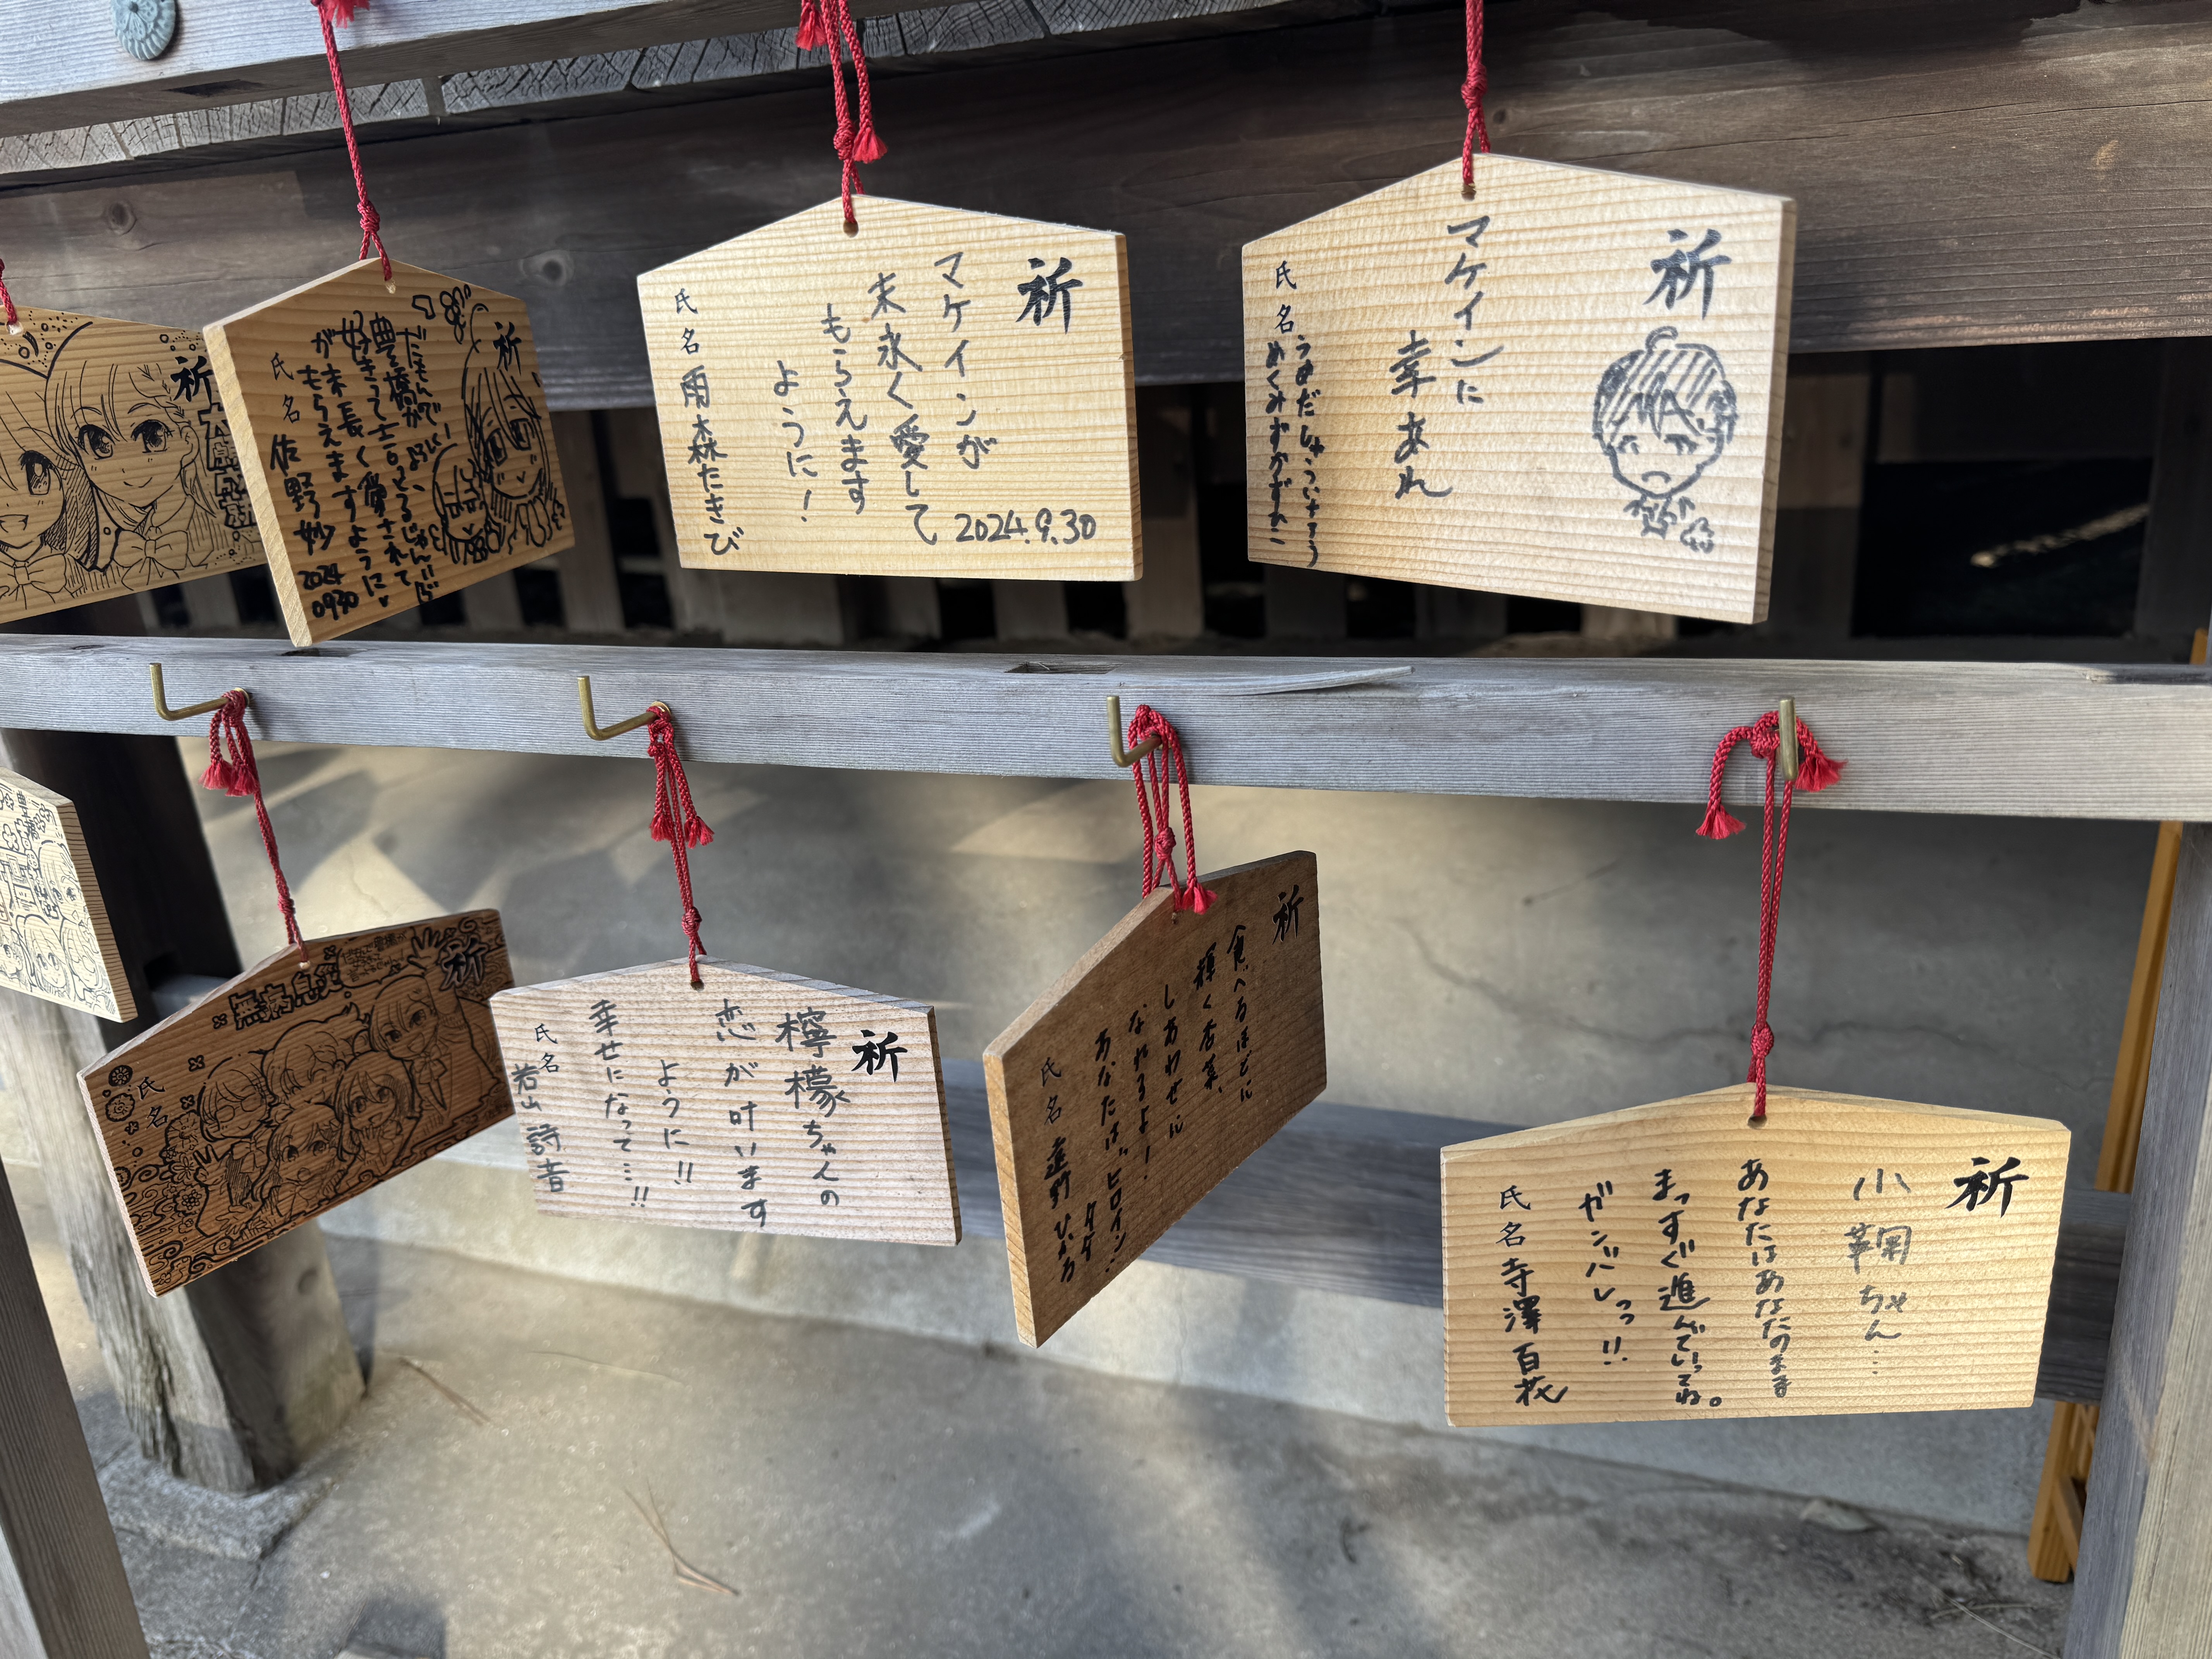 祈
大願成就
祈
だもんで！
豊橋がどえらい
好きって言っとるじゃん!!
が末長く愛されて
もらえますように
氏名 佐野妙
2024
0930
祈
マケインが
末永く愛して
もらえます
ように！
2024.9.30
氏名 雨森たきび
祈
マケインに
幸あれ
氏名
うめだしゅういちろう
祈
無病息災
氏名
祈
檸檬ちゃんの
恋が叶います
ように!!
幸せになって…!!
氏名 若山詩音
祈
食べるほどに
輝く杏菜、
しあわせに
なれるよ！
あなたは"ヒロイン…
氏名 遠野ひかる
祈
小鞠ちゃん…
あなたはあなたのまま
まっすぐ進んでいってね。
ガンバレっっ!!
氏名 寺澤百花